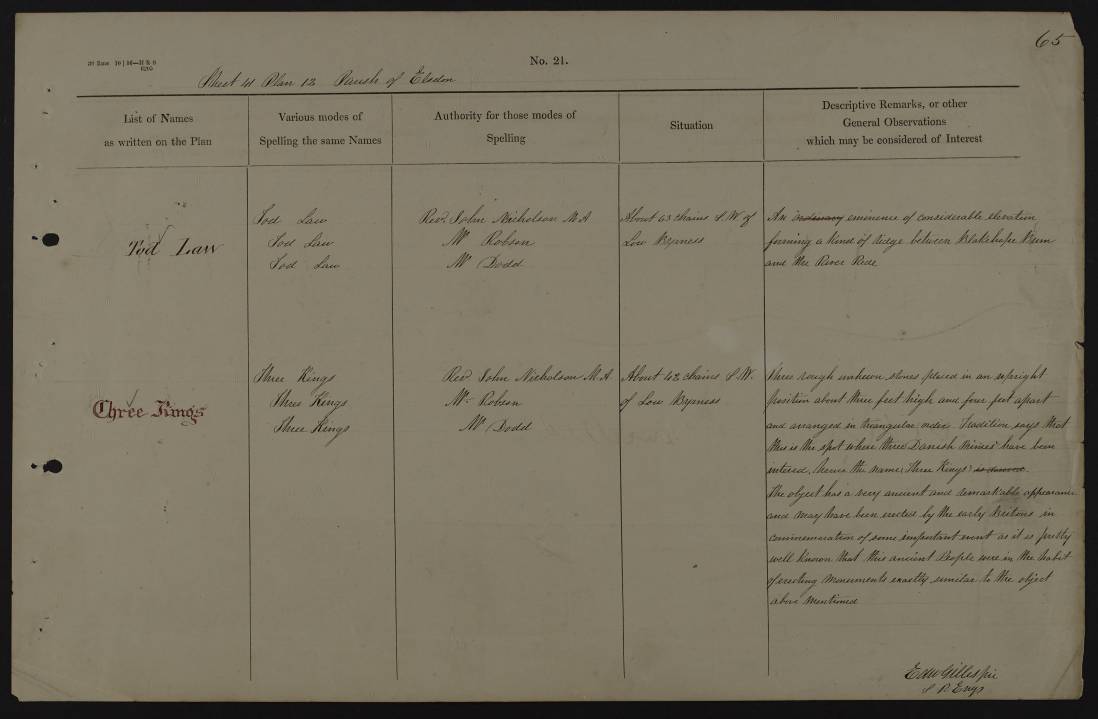 65
No. 21.
Sheet 41 Plan 12 Parish of Elsdon
List of Names
as written on the Plan
Various modes of
Spelling the same Names
Authority for those modes of
Spelling
Situation
Descriptive Remarks, or other
General Observations
which may be considered of Interest
Tod Law
Tod Law
Tod Law
Tod Law
Revd. John Nicholson M.A
Mr Robson
Mr Dodd
About 63 chains S.W. of
Low Byrness
An ordinary eminence of considerable elevation
forming a kind of ridge between Blakehope Burn
and the River Rede
Three Kings
Three Kings
Three Kings
Three Kings
Revd. John Nicholson M.A
Mr. Robson
Mr Dodd
About 42 chains S.W.
of Low Byrness
Three rough unhewn stones placed in an upright
position about three feet high and four feet apart
and arranged in triangular order. Tradition says that
this is the spot where three Danish Princes have been
intered, hence the name (Three Kings) is derived.
The object has a very ancient and remarkable appearance
and may have been erected by the early Britons in
commemoration of some important event as it is pretty
well Known that this ancient People were in the habit
of erecting Monuments exactly similar to the object
above Mentioned
Edw Gillespie
S.P. Engs